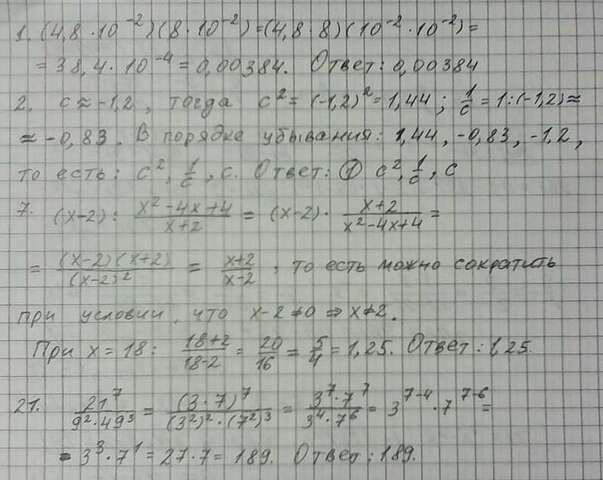 1. (4,8 · 10⁻²)(8 · 10⁻²) = (4,8 · 8)(10⁻² · 10⁻²) =
= 38,4 · 10⁻⁴ = 0,00384. Ответ: 0,00384
2. c ≈ -1,2, тогда c² = (-1,2)² = 1,44; 1/c = 1:(-1,2) ≈
≈ -0,83. В порядке убывания: 1,44, -0,83, -1,2,
то есть: c², 1/c, c. Ответ: ① c², 1/c, c
7. (x-2) : (x² - 4x + 4)/(x+2) = (x-2) · (x+2)/(x² - 4x + 4) =
= (x-2)(x+2)/(x-2)² = (x+2)/(x-2), то есть можно сократить
при условии, что x-2≠0 ⇒ x≠2.
При x = 18: (18+2)/(18-2) = 20/16 = 5/4 = 1,25. Ответ: 1,25.
21. 21⁷/(9² · 49³) = (3 · 7)⁷/((3²)² · (7²)³) = (3⁷ · 7⁷)/(3⁴ · 7⁶) = 3⁷⁻⁴ · 7⁷⁻⁶ =
= 3³ · 7¹ = 27 · 7 = 189. Ответ: 189.